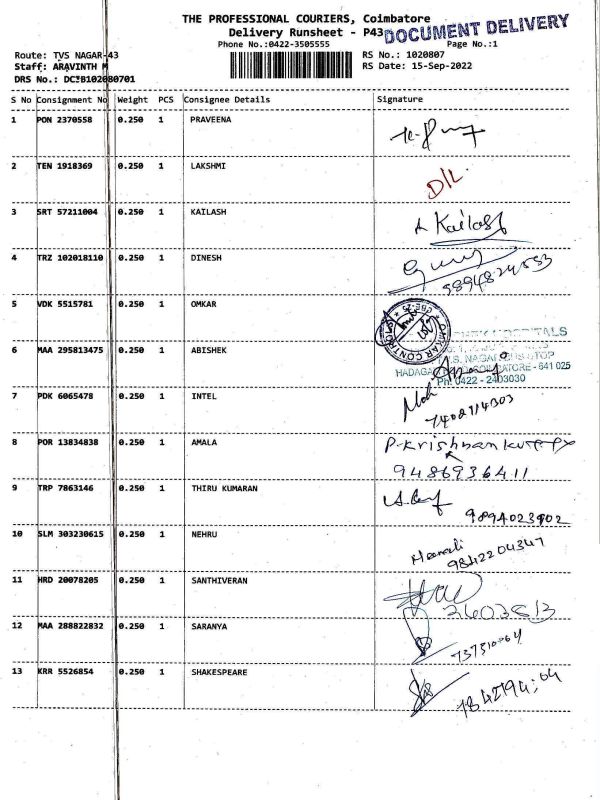 THE PROFESSIONAL COURIERS, Coimbatore
Delivery Runsheet - P43
DOCUMENT DELIVERY
Phone No.:0422-3505555 Page No.:1
Route: TVS NAGAR-43 RS No.: 1020807
Staff: ARAVINTH M RS Date: 15-Sep-2022
DRS No.:
S No Consignment No Weight PCS Consignee Details Signature
1 PON 2370558 0.250 1 PRAVEENA
2 TEN 1918369 0.250 1 LAKSHMI D/L
3 SRT 57211004 0.250 1 KAILASH Kailash
4 TRZ 102018110 0.250 1 DINESH
5894824553
5 VDK 5515781 0.250 1 OMKAR
6 MAA 295813475 0.250 1 ABISHEK
NAGAR BUS STOP
COIMBATORE - 641 025
Ph: 0422 - 2403030
7 PDK 6065478 0.250 1 INTEL
8 POR 13834838 0.250 1 AMALA P-Krishnan Kutty
9486936411
9 TRP 7863146 0.250 1 THIRU KUMARAN
9894023902
10 SLM 303230615 0.250 1 NEHRU
9842204347
11 HRD 20078205 0.250 1 SANTHIVERAN
12 MAA 288822832 0.250 1 SARANYA
13 KRR 5526854 0.250 1 SHAKESPEARE